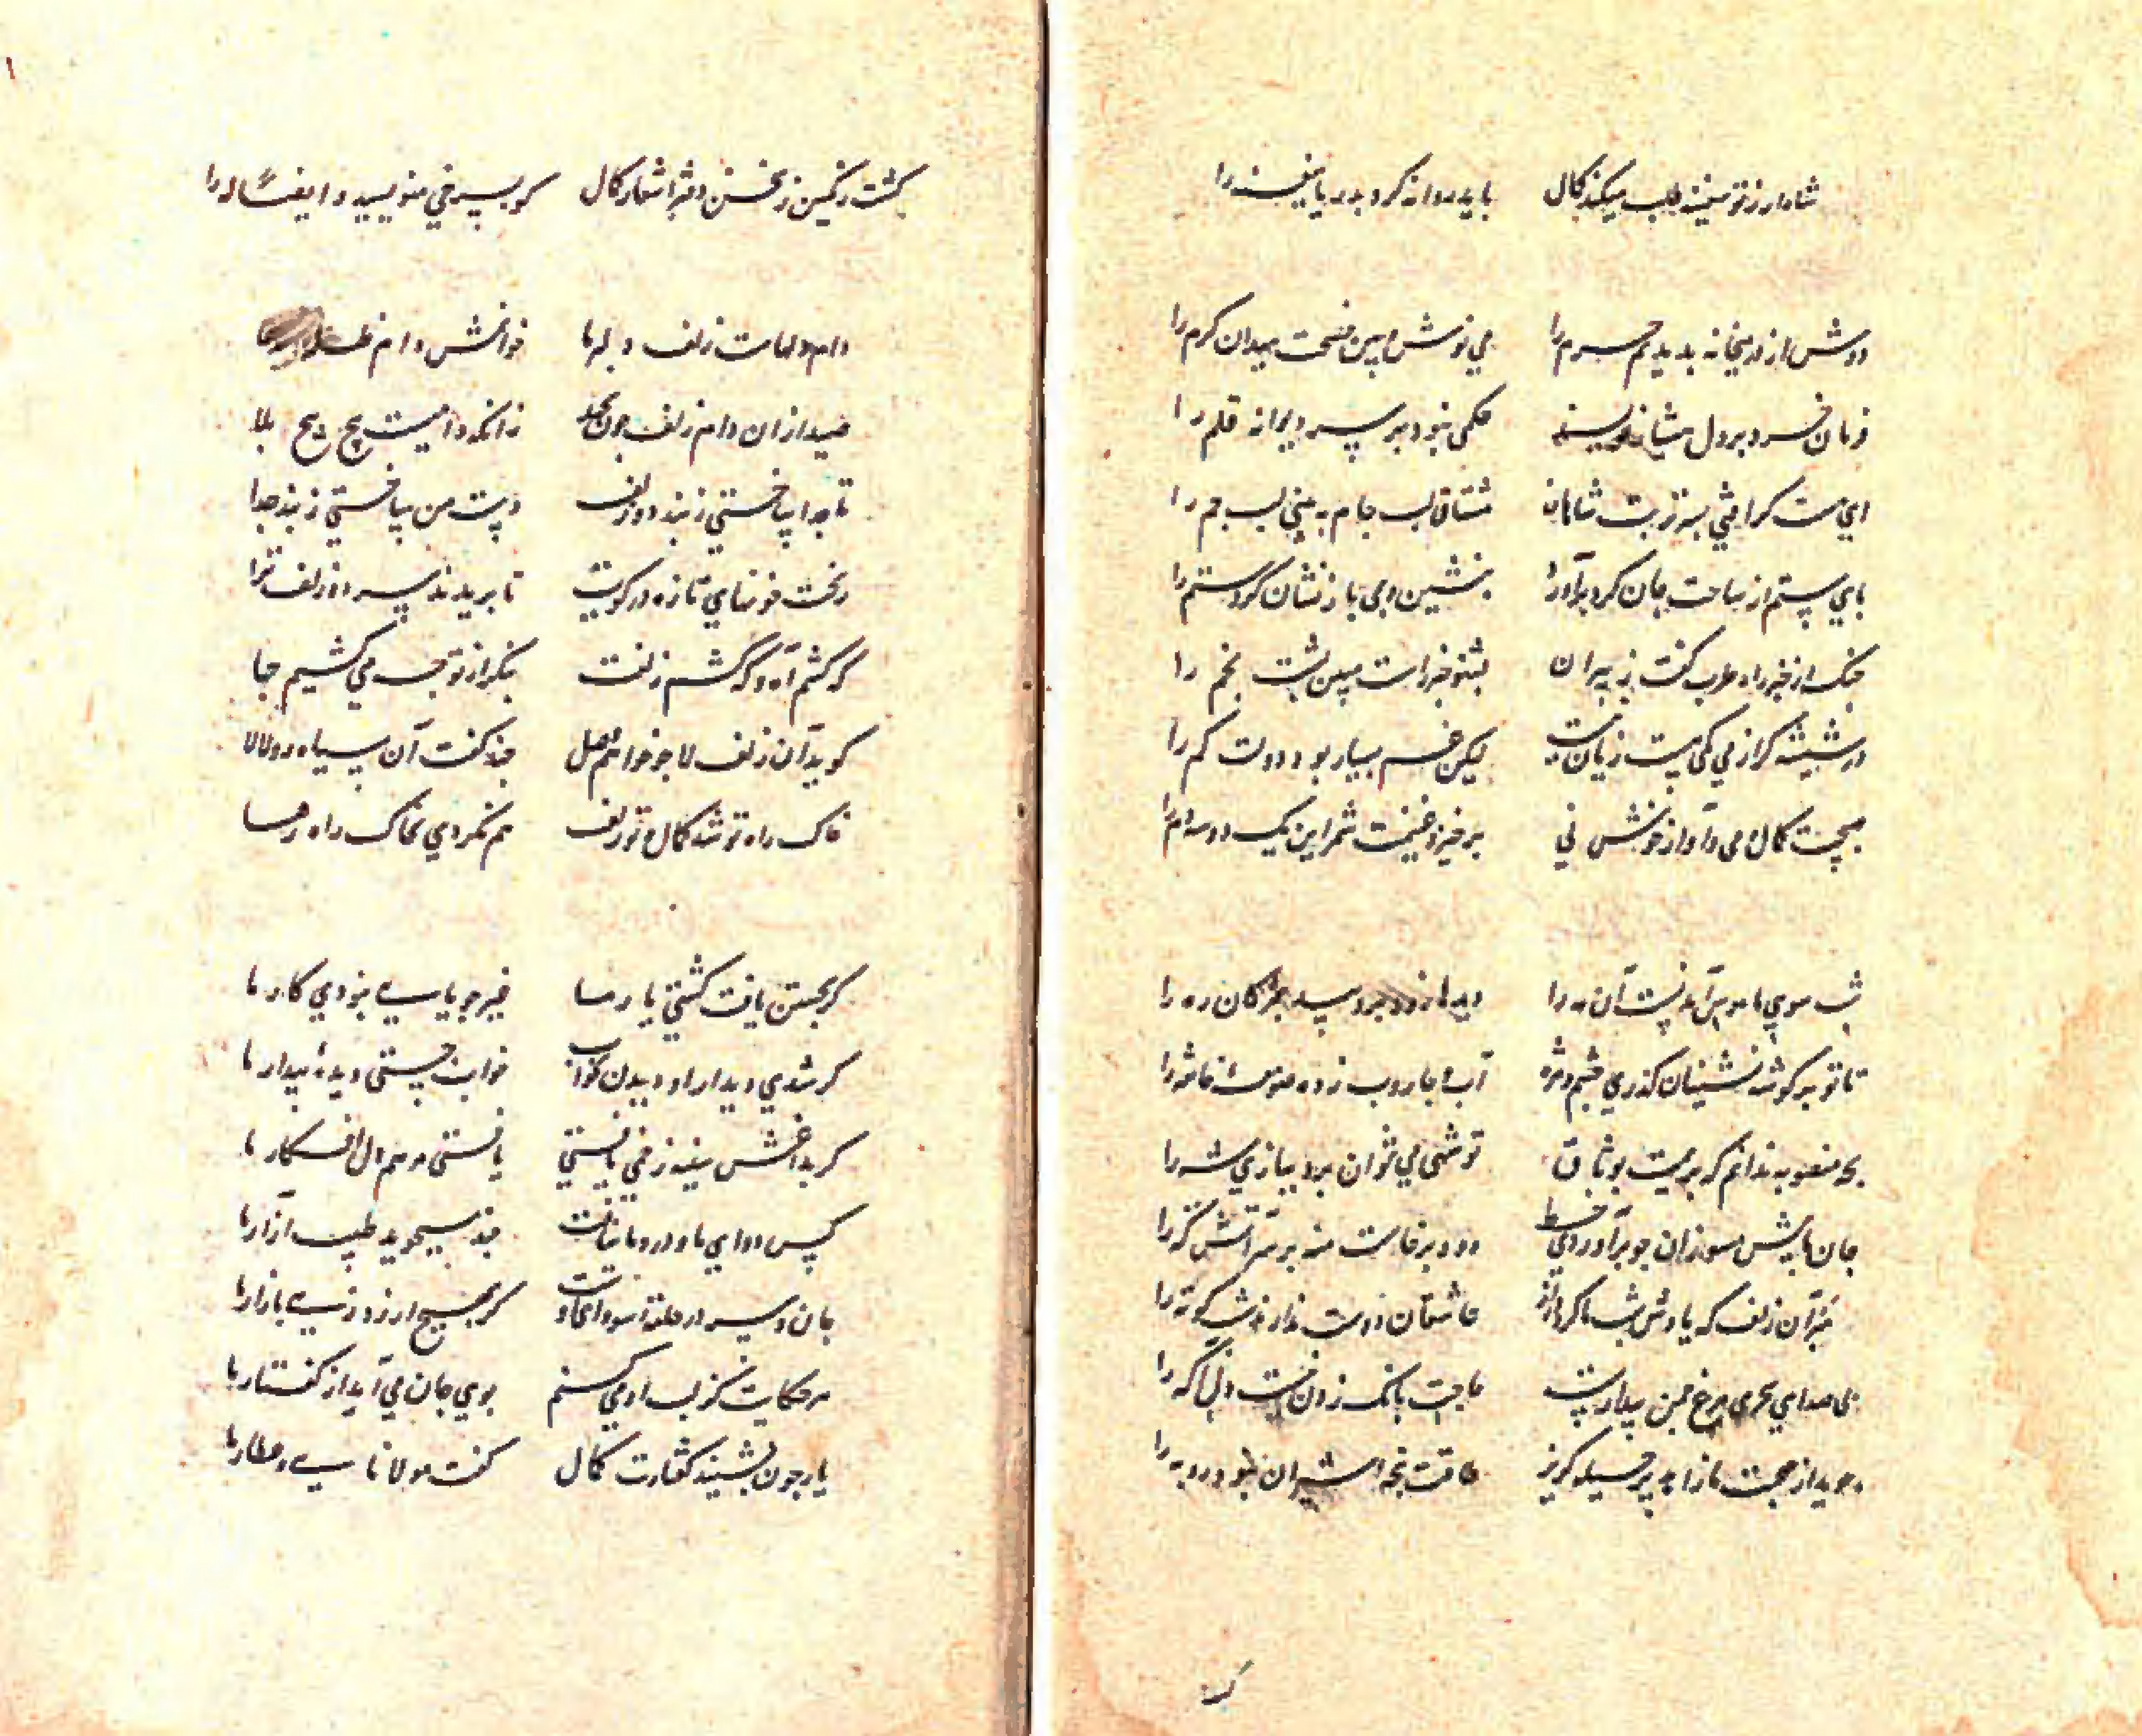 شاها ز تو سفینه طلب میکند کمال   باید روانه کرد بدریا سفینه را
دوش از در میخانه بدیدیم حرم را   می نوش و ببین فسحت میدان کرم را
فرمان خرد بر دل هشیار نویسند   حکمی نبود بر سر دیوانه قلم را
ای مست گر افتی بسر تربت شاهان   مشتاق لب جام به بینی لب جم را
پای ستم از ساحت جان گرد برآورد   بنشین و می باز نشان گرد ستم را
چنک از خبر راه طرب گفت به پیران   بشنو خبر راست مبین پشت بخم را
در شیشه گر از می کمی هست زیان نیست   لیکن غم بسیار بود دولت کم را
هیچست کمال می و آواز خوش نی   برخیز و غنیمت شمر این یک دو سه دم را
شب سوی ما هوس آمدنست آن مه را   دیده از دود برد سیل مژگان ره را
تا تو بر گوشه نشینان گذری چشم و مژه   آب و جاروب زده صومعه و خانقه را
بچه منصوبه ندانم که بریمت بوثاق   تو شهی می نتوان برد ببازی شه را
جان ما بیش مسوزان چو برآوردی خط   دود برخاست منه بر سر آتش که را
مبر آن زلف که یادش بشب ما کرد دراز   عاشقان دوست ندارند شب کوته را
بی صدای سحری مرغ چمن بیدارست   حاجت بانک زدن نیست دل آگه را
جوید از صحبت ما زاهد پر حیله گریز   طاقت پنجه شیران نبود روبه را
کر
گشت رنگین ز سخن دفتر اشعار کمال   گو بسرخی منویسید و ایضا له را
دام دلهاست زلف دلبر ما   خوانمش دام ظله ابدا
صید از آن دام زلف چون بجهد   زانکه دامیست پیچ پیچ بلا
تا جدا ساختی ز بند دو زلف   دست من ساختی ز بند جدا
ریخت خونهای تازه در کویت   تا بریدند سر دو زلف ترا
گر کشم آه و گر کشم زلفت   بنگر از تو چه می کشیم جفا
گوید آن زلف لا چو خواهم وصل   چند گفت آن سیاه رو لالا
خاک راه تو شد کمال و تو زلف   هم نکردی بخاک راه رها
گر بجستن یافت گشتی یار ما   غیر جویایی نبودی کار ما
گر شدی دیدار او دیدن بخواب   خواب جستی دیده بیدار ما
گر بداغش سینه زخمی یافتی   یافتی مرهم دل افکار ما
کس دوای ما و درد ما نیافت   چند میجوید طبیب آزار ما
جان و سر در حلقه سودای اوست   گر بهیچ ارزد زهی بازار ما
هر حکایت کز لب او می کنم   بوی جان می آید از گفتار ما
یار چون بشنید گفتارت کمال   گفت مولانای ما عطار ما